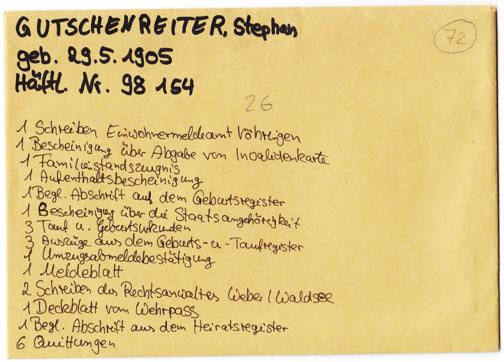 GUTSCHENREITER, Stephan
72
geb. 29.5.1905
Häftl. Nr. 98 154
26
1 Schreiben Einwohnermeldeamt Vöhringen
1 Bescheinigung über Abgabe von Invalidenkarte
1 Familienstandszeugnis
1 Aufenthaltsbescheinigung
1 Begl. Abschrift aus dem Geburtsregister
1 Bescheinigung über die Staatsangehörigkeit
3 Tauf u. Geburtsurkunden
3 Auszüge aus dem Geburts-u-Taufregister
1 Umzugsabmeldebestätigung
1 Meldeblatt
2 Schreiben des Rechtsanwaltes Weber / Waldsee
1 Deckblatt vom Wehrpass
1 Begl. Abschrift aus dem Heiratsregister
6 Quittungen